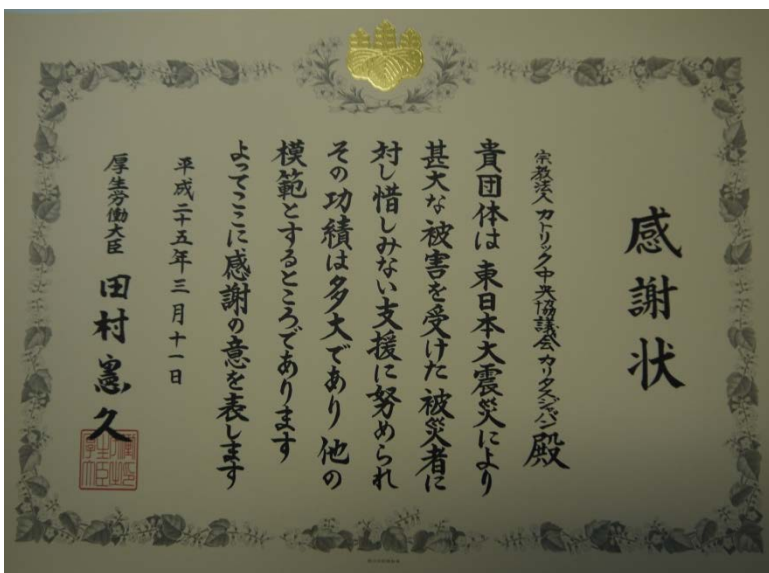 感謝状
宗教法人 カトリック中央協議会 カリタスジャパン 殿
貴団体は 東日本大震災により
甚大な被害を受けた 被災者に
対し惜しみない支援に努められ
その功績は多大であり 他の
模範とするところであります
よってここに感謝の意を表します
平成二十五年三月十一日
厚生労働大臣 田村憲久